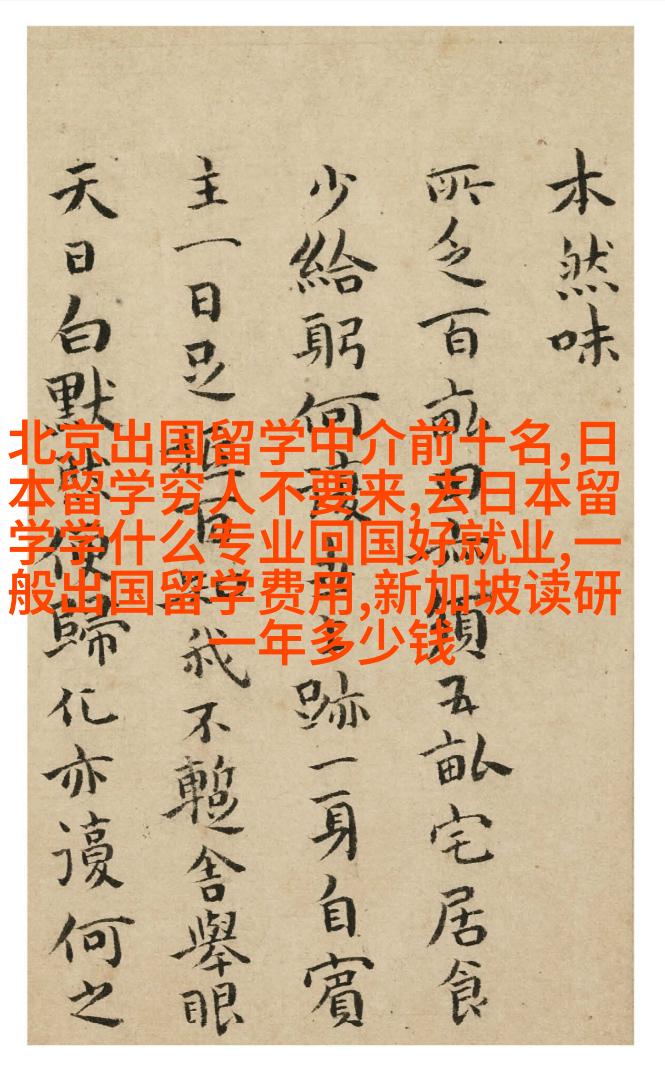 本然味
所乏百畝田須五畝宅居食
少給躬何憂跡一身自賓
主一日足百我不蹔舍舉眼
天日白默便歸化亦謾何之
北京出国留学中介前十名,日
本留学穷人不要来,去日本留
学学什么专业回国好就业,一
般出国留学费用,新加坡读研
一年多少钱